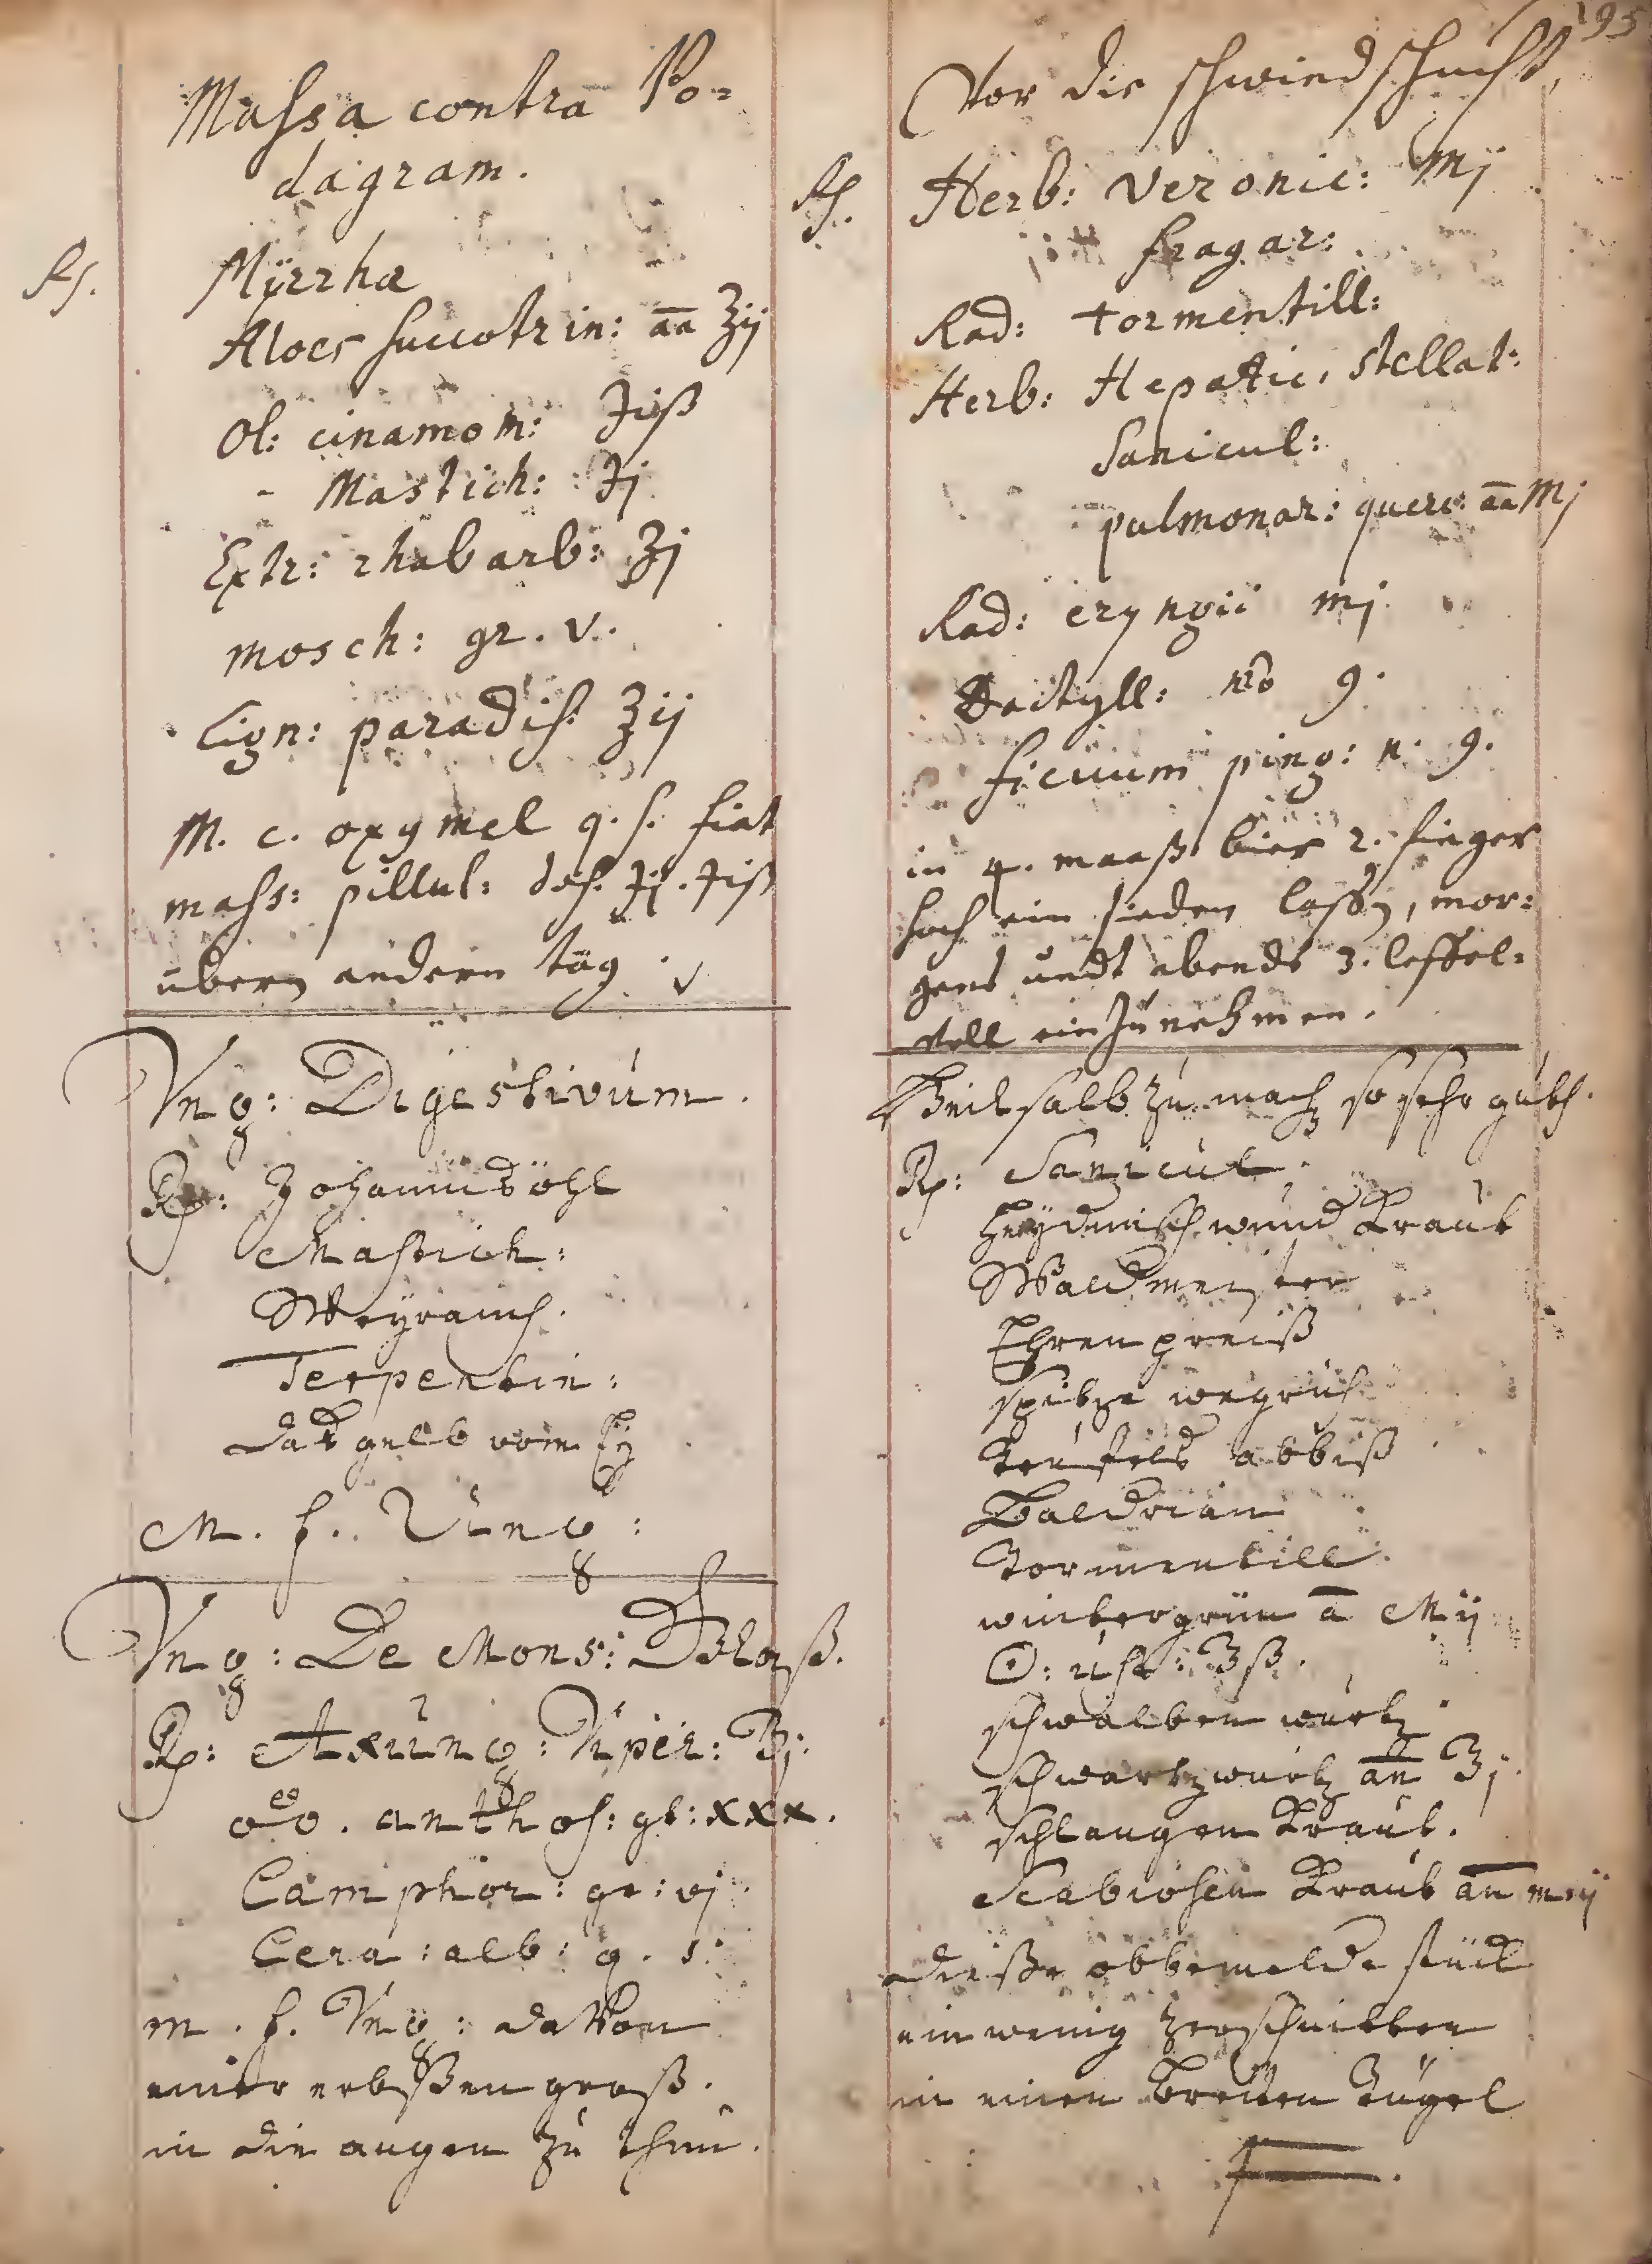 Massa contra Po-
dagram.
Rs. Mÿrrhæ
Aloes succotrin: āā ʒij
Ol: cinamom: ℈iiß
- Mastich: ℈j
Extr: rhabarb: ʒj
mosch: gr. v.
Lign: paradis: ʒij
M. c. oxymel q. s. fiat
mass: pillul: dos. ℈j. ℈iß
übern andern tag.
Vng: Digestivum.
Rp: Johannis öhl
Mastich:
Weyrauch.
Terpentin:
das gelb vom Eÿ
M. f. Ung:
Vng: De Mons:
Rp: Axung: Viper: ʒj.
anthos: gt: xxx.
Camphor: gr: vj.
Cera: alb: q. s.
m. f. Vng: davon
einer erbßen groß.
in die augen zu thun.
195
Vor die schwindschucht,
Rs. Herb: Veronic: Mj
fragar:
Rad: tormentill:
Herb: Hepatic, stellat:
Sanicul:
pulmonar: querc: āā Mj
Rad: eryngii mj
Dactyll: No 9.
ficuum ping: n. 9.
in 4. maaß bier 2. finger
hoch ein sieden lassen, mor-
gens undt abends 3. leffel-
voll ein zu nehmen.
salb zu machen so sehr guth.
Rp: Sanicul:
Heydnisch wund Kraut
Waldmeister
Ehrenpreiß
spitze wegrich
teufels abbiß
Baldrian
Tormentill.
wintergrün ā Mij
schwalben wurtz
schwartzwurtz ān ʒj.
schlangen Kraut.
Scabiosen Kraut ān mij
dieße obbemelde stück
ein wenig zerschnitten
in einen breiten tügel